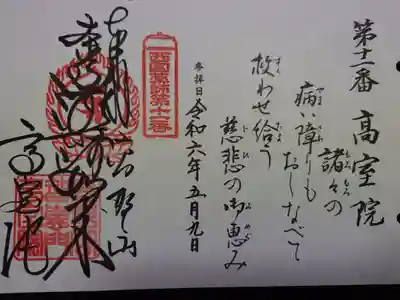 第十一番 高室院
諸々の
病い障りも
おしなべて
救わせ給う
慈悲の御恵み
参拝日 令和六年五月九日
西国薬師第十一番
奉拝 高野山
如来
高室院